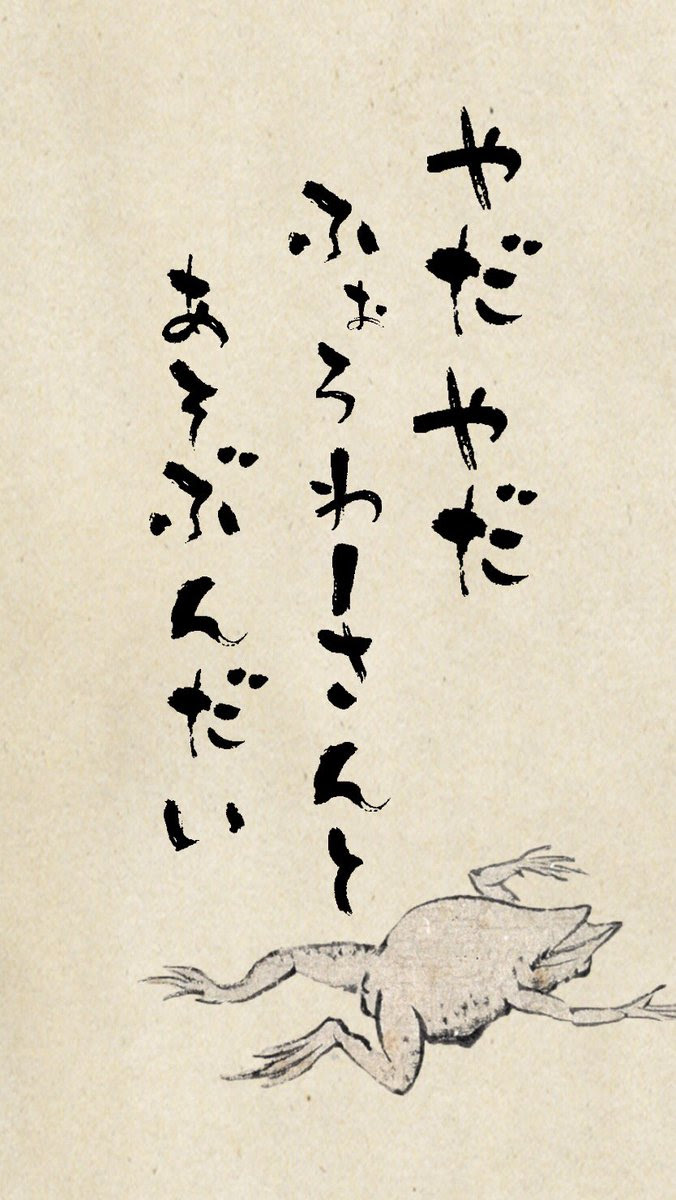 やだやだ
ふぉろわーさんと
あそぶんだい